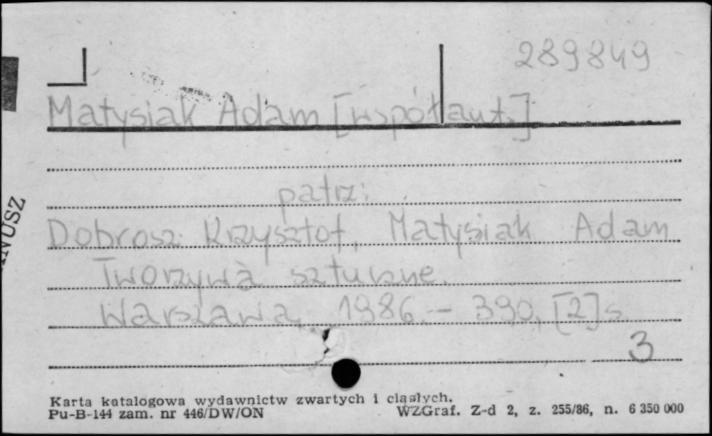 289849
Matysiak Adam [współaut.]
patrz:
Dobrosz Krzysztof, Matysiak Adam
Tworzywa sztuczne.
Warszawa, 1986. - 390, [2] s.
3
Karta katalogowa wydawnictw zwartych i ciągłych.
Pu-B-144 zam. nr 446/DW/ON WZGraf. Z-d 2, z. 255/86, n. 6 350 000
NUSZ